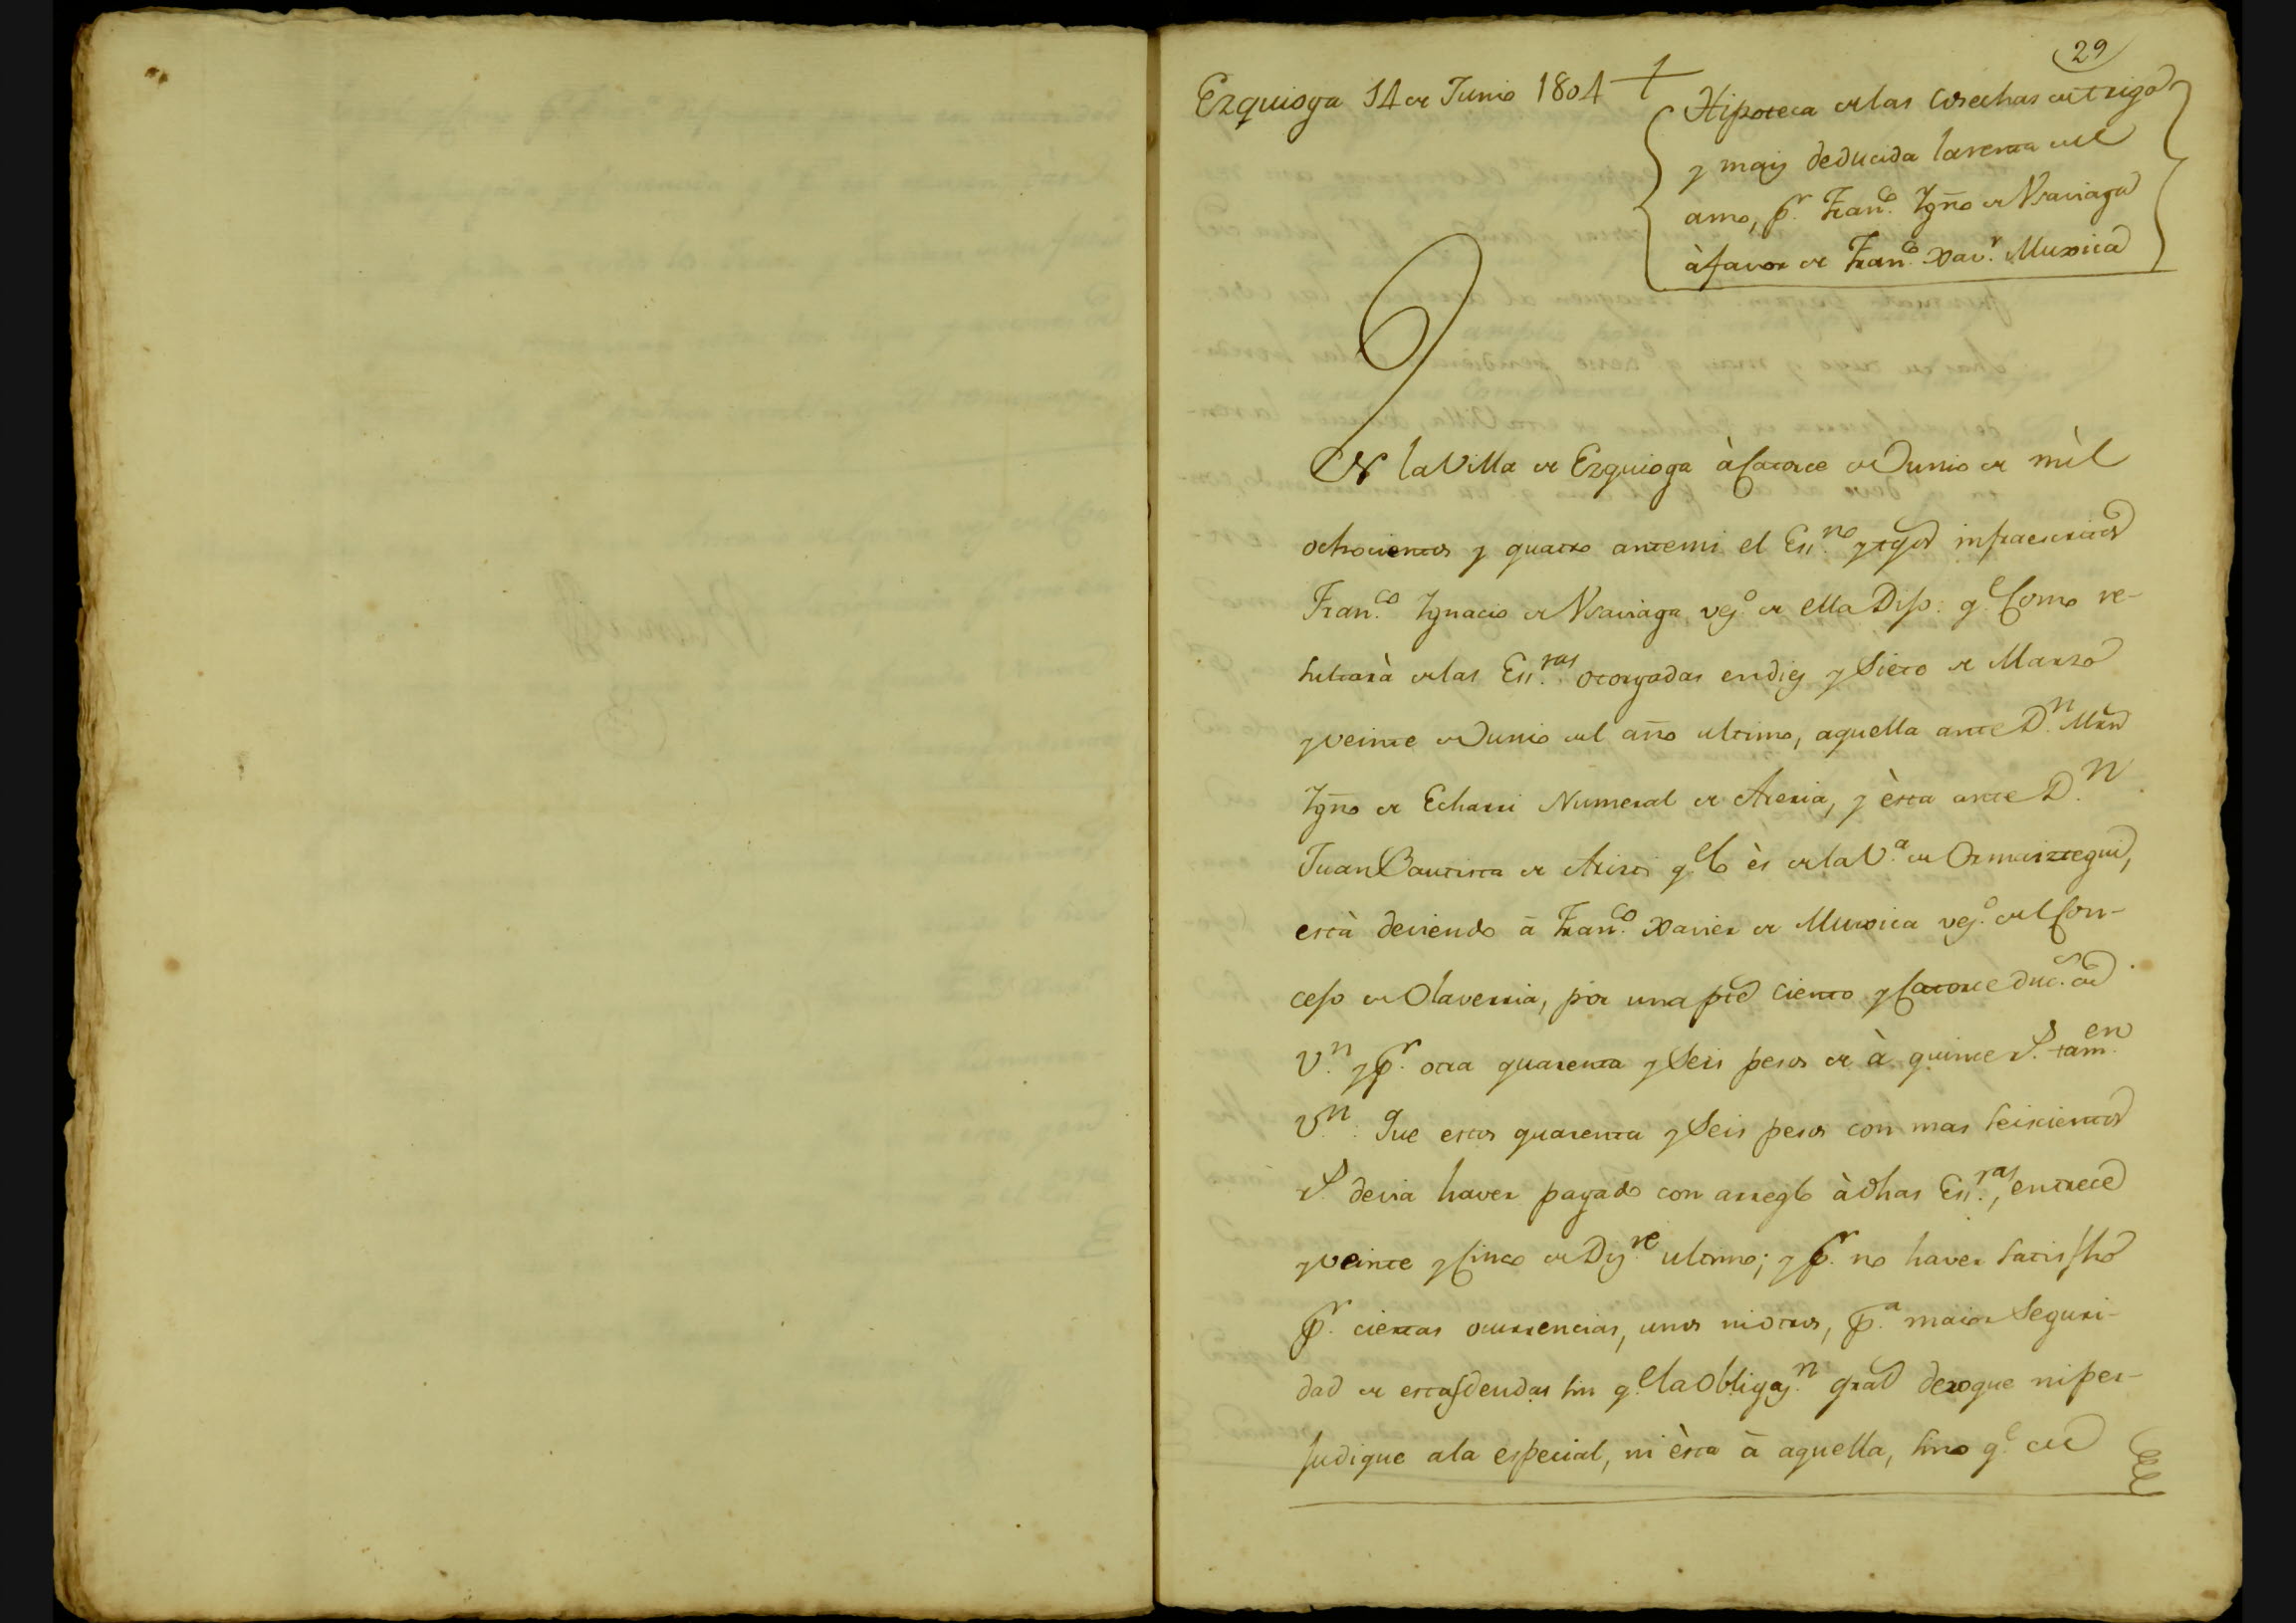 29
Ezquioga 14 de Junio 1804 +
Hipoteca de las Cosechas de trigo
y maiz deducida la renta del
amo, pr. Franco. Ygno de Vraviaga
à favor de Franco. Xavr. Muxica
EN la Villa de Ezquioga à Catorce de Junio de mìl
ochocientos y quatro ante mi el Essno. y tgos infraescritos
Franco. Ygnacio de Vraviaga vezo. de ella Dijo: qe. Como re-
sultarà de las Essras. otorgadas en diez y Siete de Marzo
y veinte de Junio del año ultimo, aquella ante Dn. Mrn
Ygno de Echarri Numeral de Areria, y èsta ante Dn.
Juan Bautista de Arizti qe. lo ès de la Va. de Ormaiztegui,
està deviendo à Franco. Xavier de Muxica vezo. del Con-
cejo de Olaverria, por una pte ciento y Catorce ducs. de
Vn. y pr. otra quarenta y Seis pesos de à quince rs. tamen.
Vn. Que estos quarenta y Seis pesos con mas seiscientos
rs. devia haver pagado con arreglo à dhas Essras., en trece
y veinte y Cinco de Dizre. ultimo; y pr. no haver satisfho
pr. ciertas ocurrencias, unos ni otros, pa. maior Seguri-
dad de estas deudas sin qe. la Obligazn. gral derogue ni per-
judique a la especial, ni èsta à aquella, sino qe. de